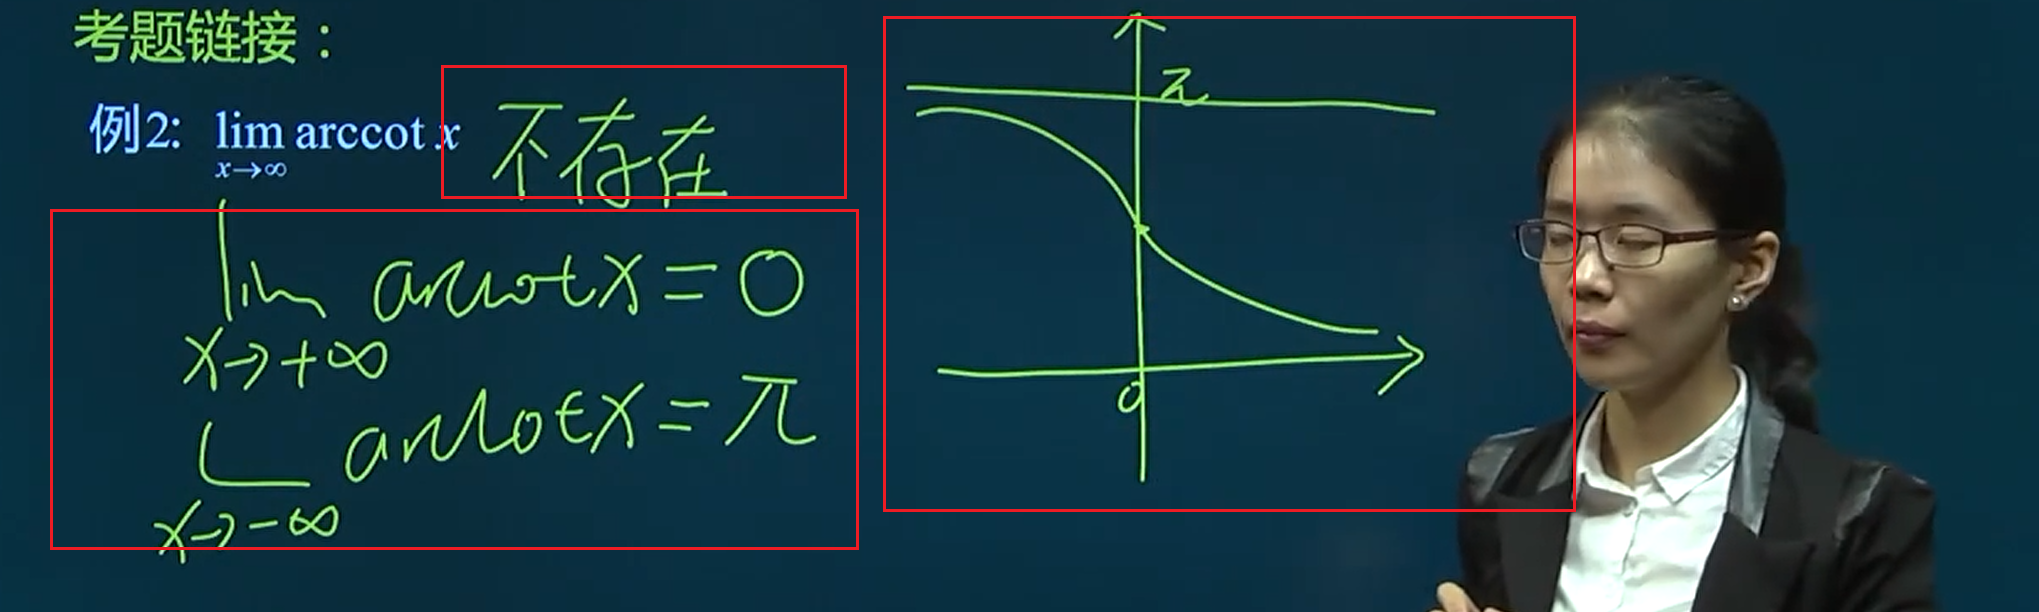 考题链接：
例2: lim arccot x 不存在
x→∞
lim arccot x = 0
x→+∞
L arccot x = π
x→-∞
π
0